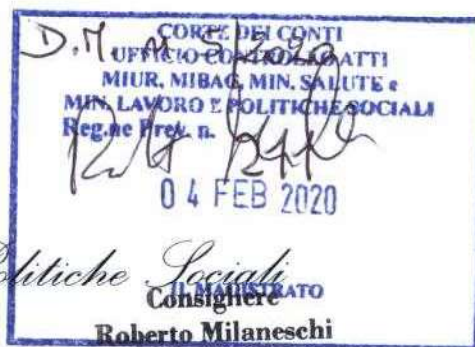 D.M. n. 5/2020
CORTE DEI CONTI
UFFICIO CONTROLLO ATTI
MIUR, MIBAC, MIN. SALUTE e
MIN. LAVORO E POLITICHE SOCIALI
Reg.ne Prev. n.
04 FEB 2020
Politiche Sociali
IL MAGISTRATO
Consigliere
Roberto Milaneschi